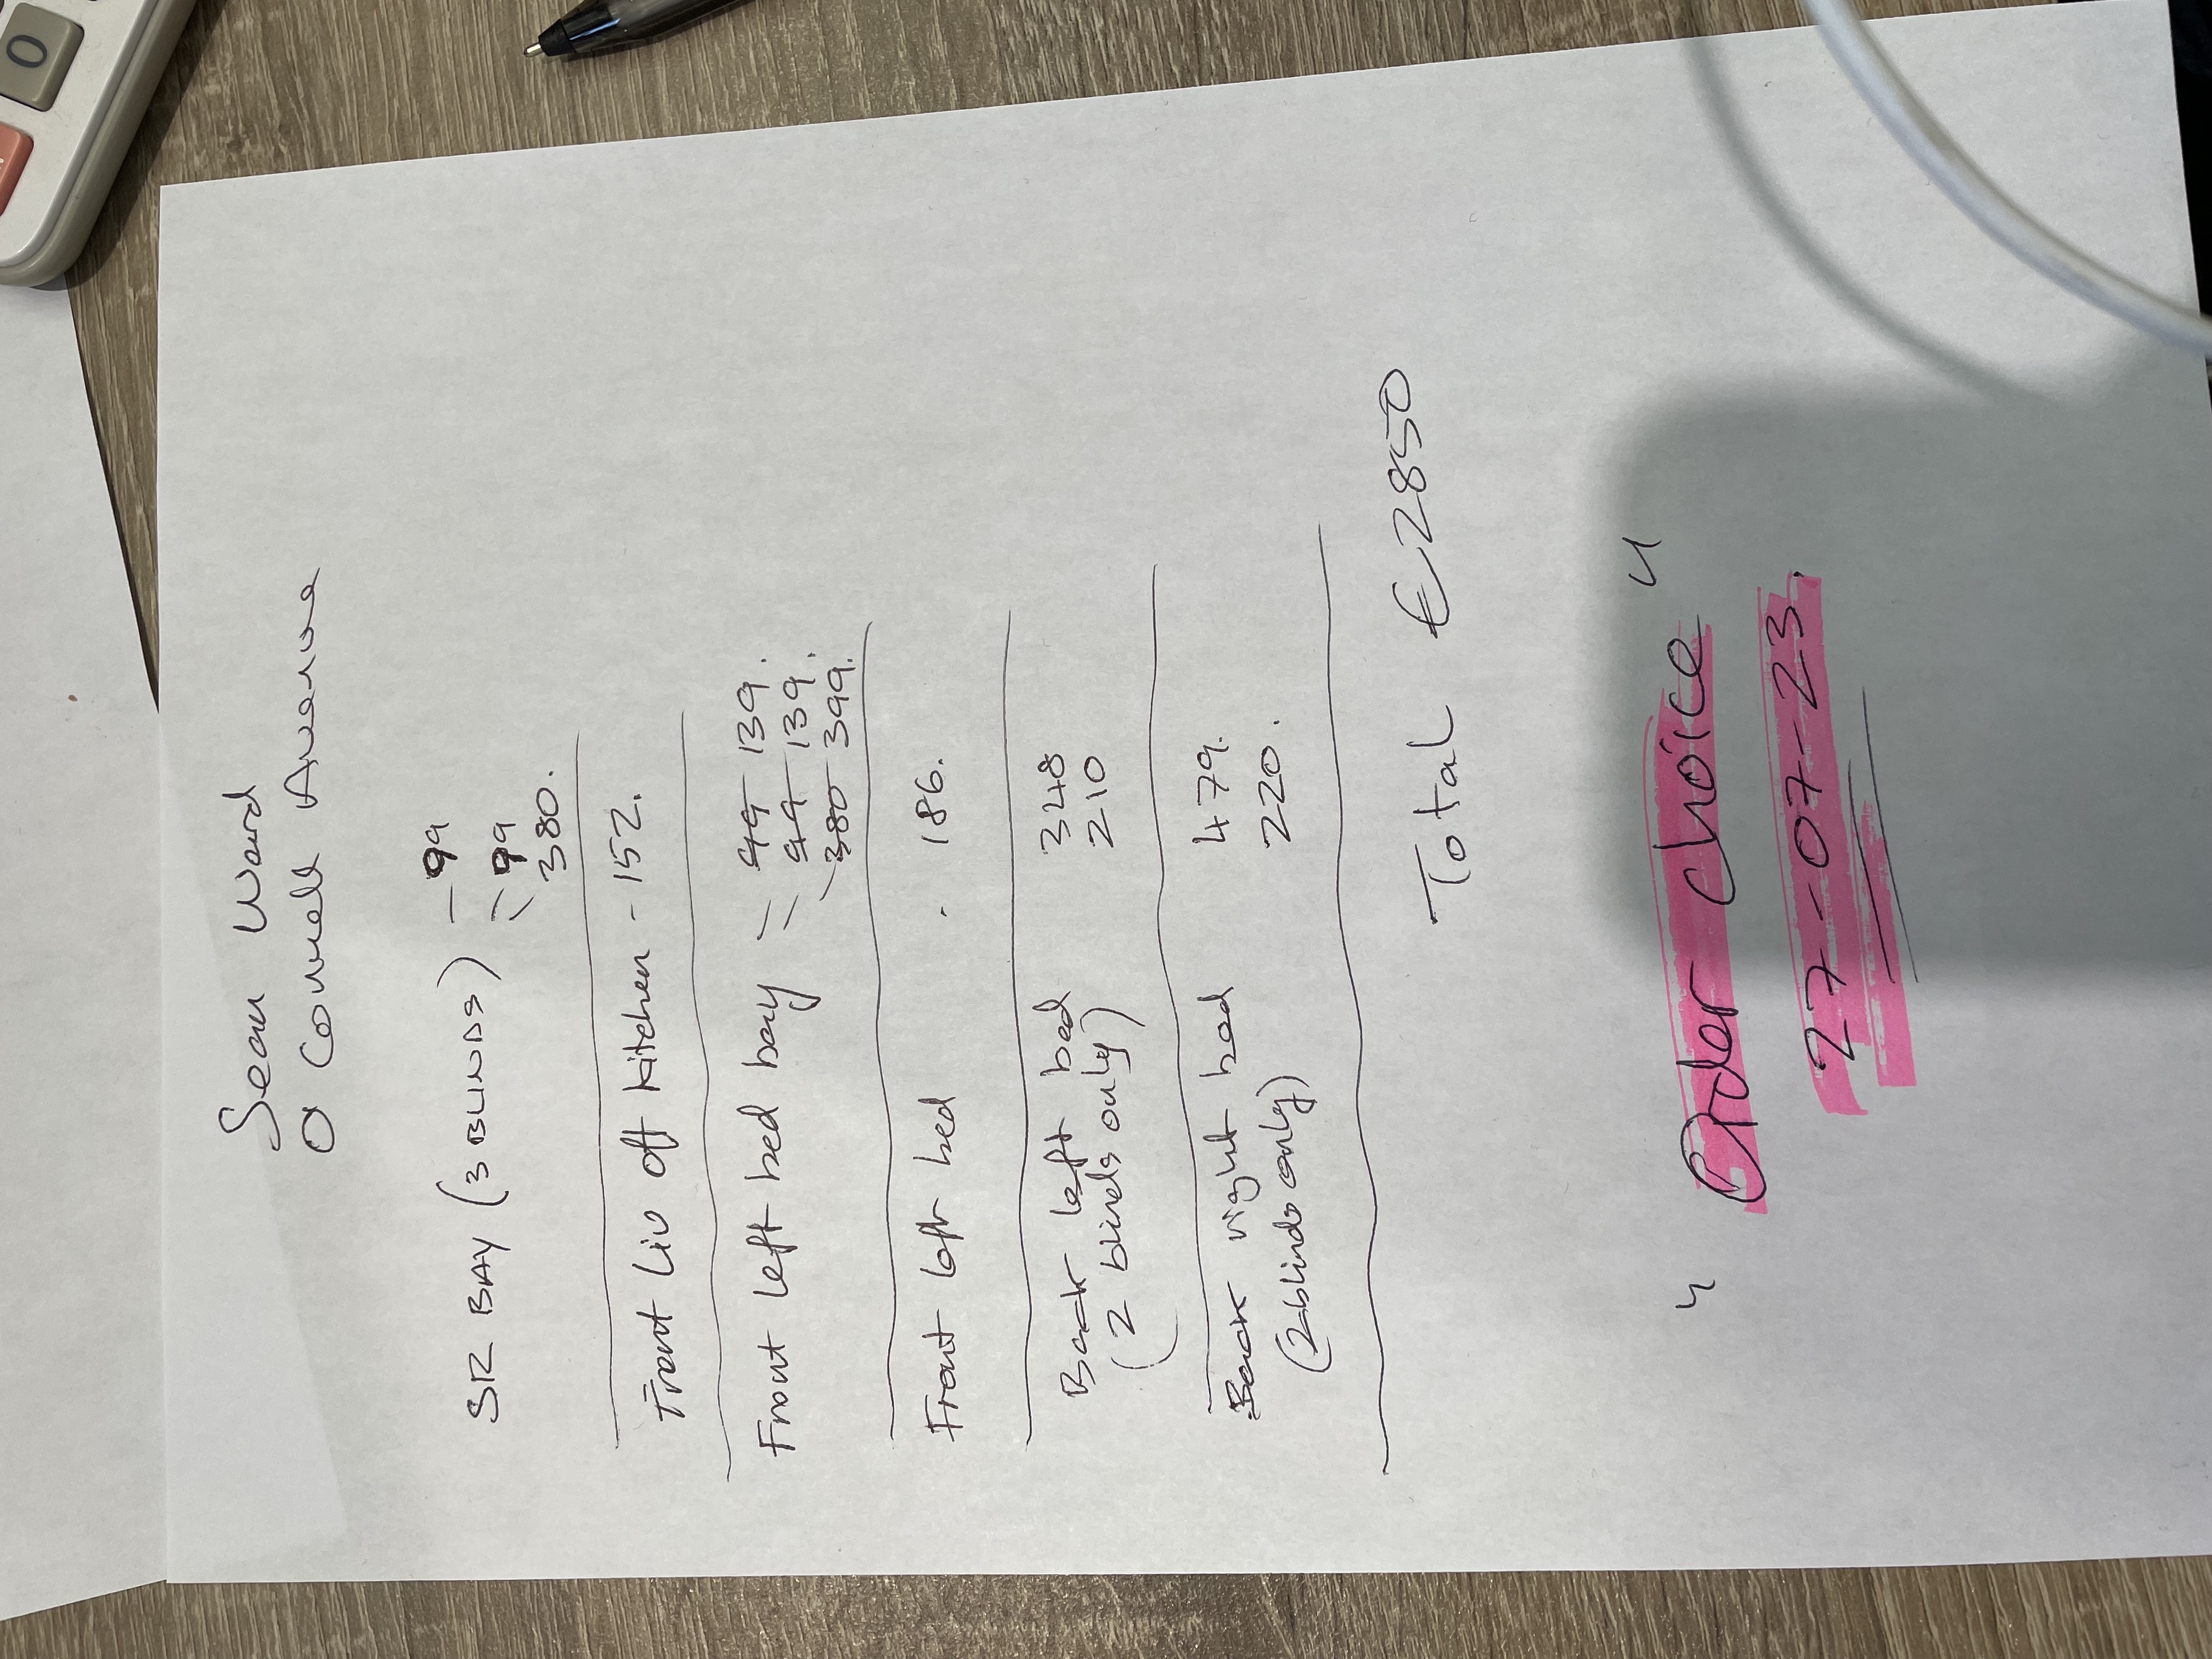 Sean Ward
O Connell Avenue
SR BAY (3 BLINDS) - 99
- 99
380.
Front Liv off kitchen - 152.
Front left bed bay - 99 139.
- 99 139.
- 380 399.
Front left bed - 186.
Back left bed 348
(2 blinds only) 210
Back right bed 479.
(2 blinds only) 220.
Total €2850
"Order choice"
27-07-23.
0